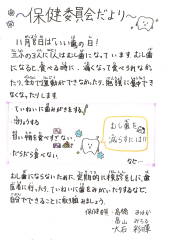 ～保健委員会だより～
11月8日は「いい歯の日」!
3人に1人はむし歯になっています。むし歯
になると、食べる時に、痛くなって食べられなか
ったり、全力で運動ができなかったり、勉強に集中でき
なくなったりします。
ていねいに歯みがきをする。
甘い物を食べすぎない。
だらだら食べない。
むし歯を
減らすには!!
など…
むし歯にならないために、定期的に検診をしに歯
医者に行ったり、ていねいに歯をみがいたりするなど、
自分でできることに取り組みましょう。
保健委員 高橋
畠山
大石